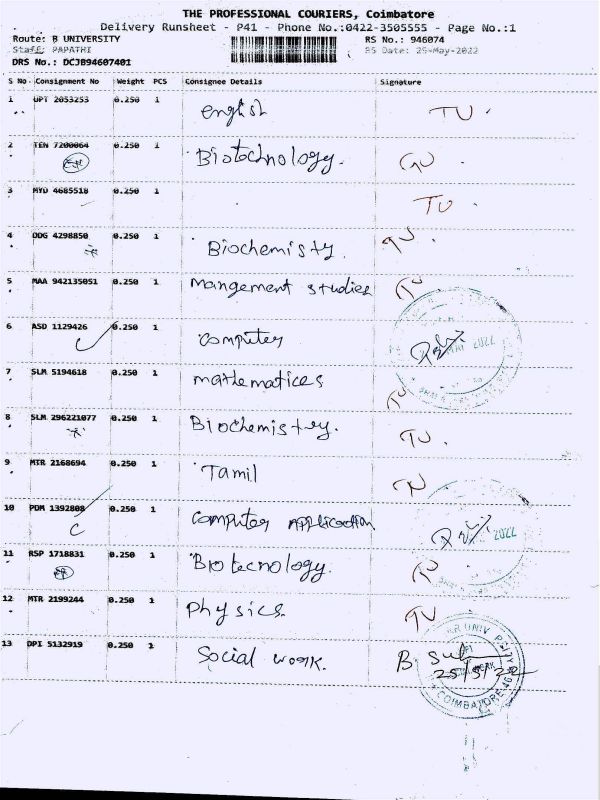 THE PROFESSIONAL COURIERS, Coimbatore
Delivery Runsheet - P41 - Phone No.:0422-3505555 - Page No.:1
Route: B UNIVERSITY RS No.: 946074
Staff: PAPATHI RS Date: 25-May-2022
DRS No.: DCJB94607401
S No. Consignment No Weight PCS Consignee Details Signature
1 UPT 2053253 0.250 1 english TU.
2 TEN 7200064 0.250 1 Biotechnology.
3 MYD 4685518 0.250 1 TU.
4 ODG 4298850 0.250 1 Biochemisty.
5 MAA 942135051 0.250 1 Mangement studies
6 ASD 1129426 0.250 1 Computer
7 SLM 5194618 0.250 1 mathematices
8 SLM 296221077 0.250 1 Biochemistry. TU.
9 MTR 2168694 0.250 1 Tamil
10 PDM 1392808 0.250 1 Computer Application 2022
11 RSP 1718831 0.250 1 Biotecnology.
12 MTR 2199244 0.250 1 Physics. TU
13 DPI 5132919 0.250 1 Social work. B. Sub
25/5/22
COIMBATORE